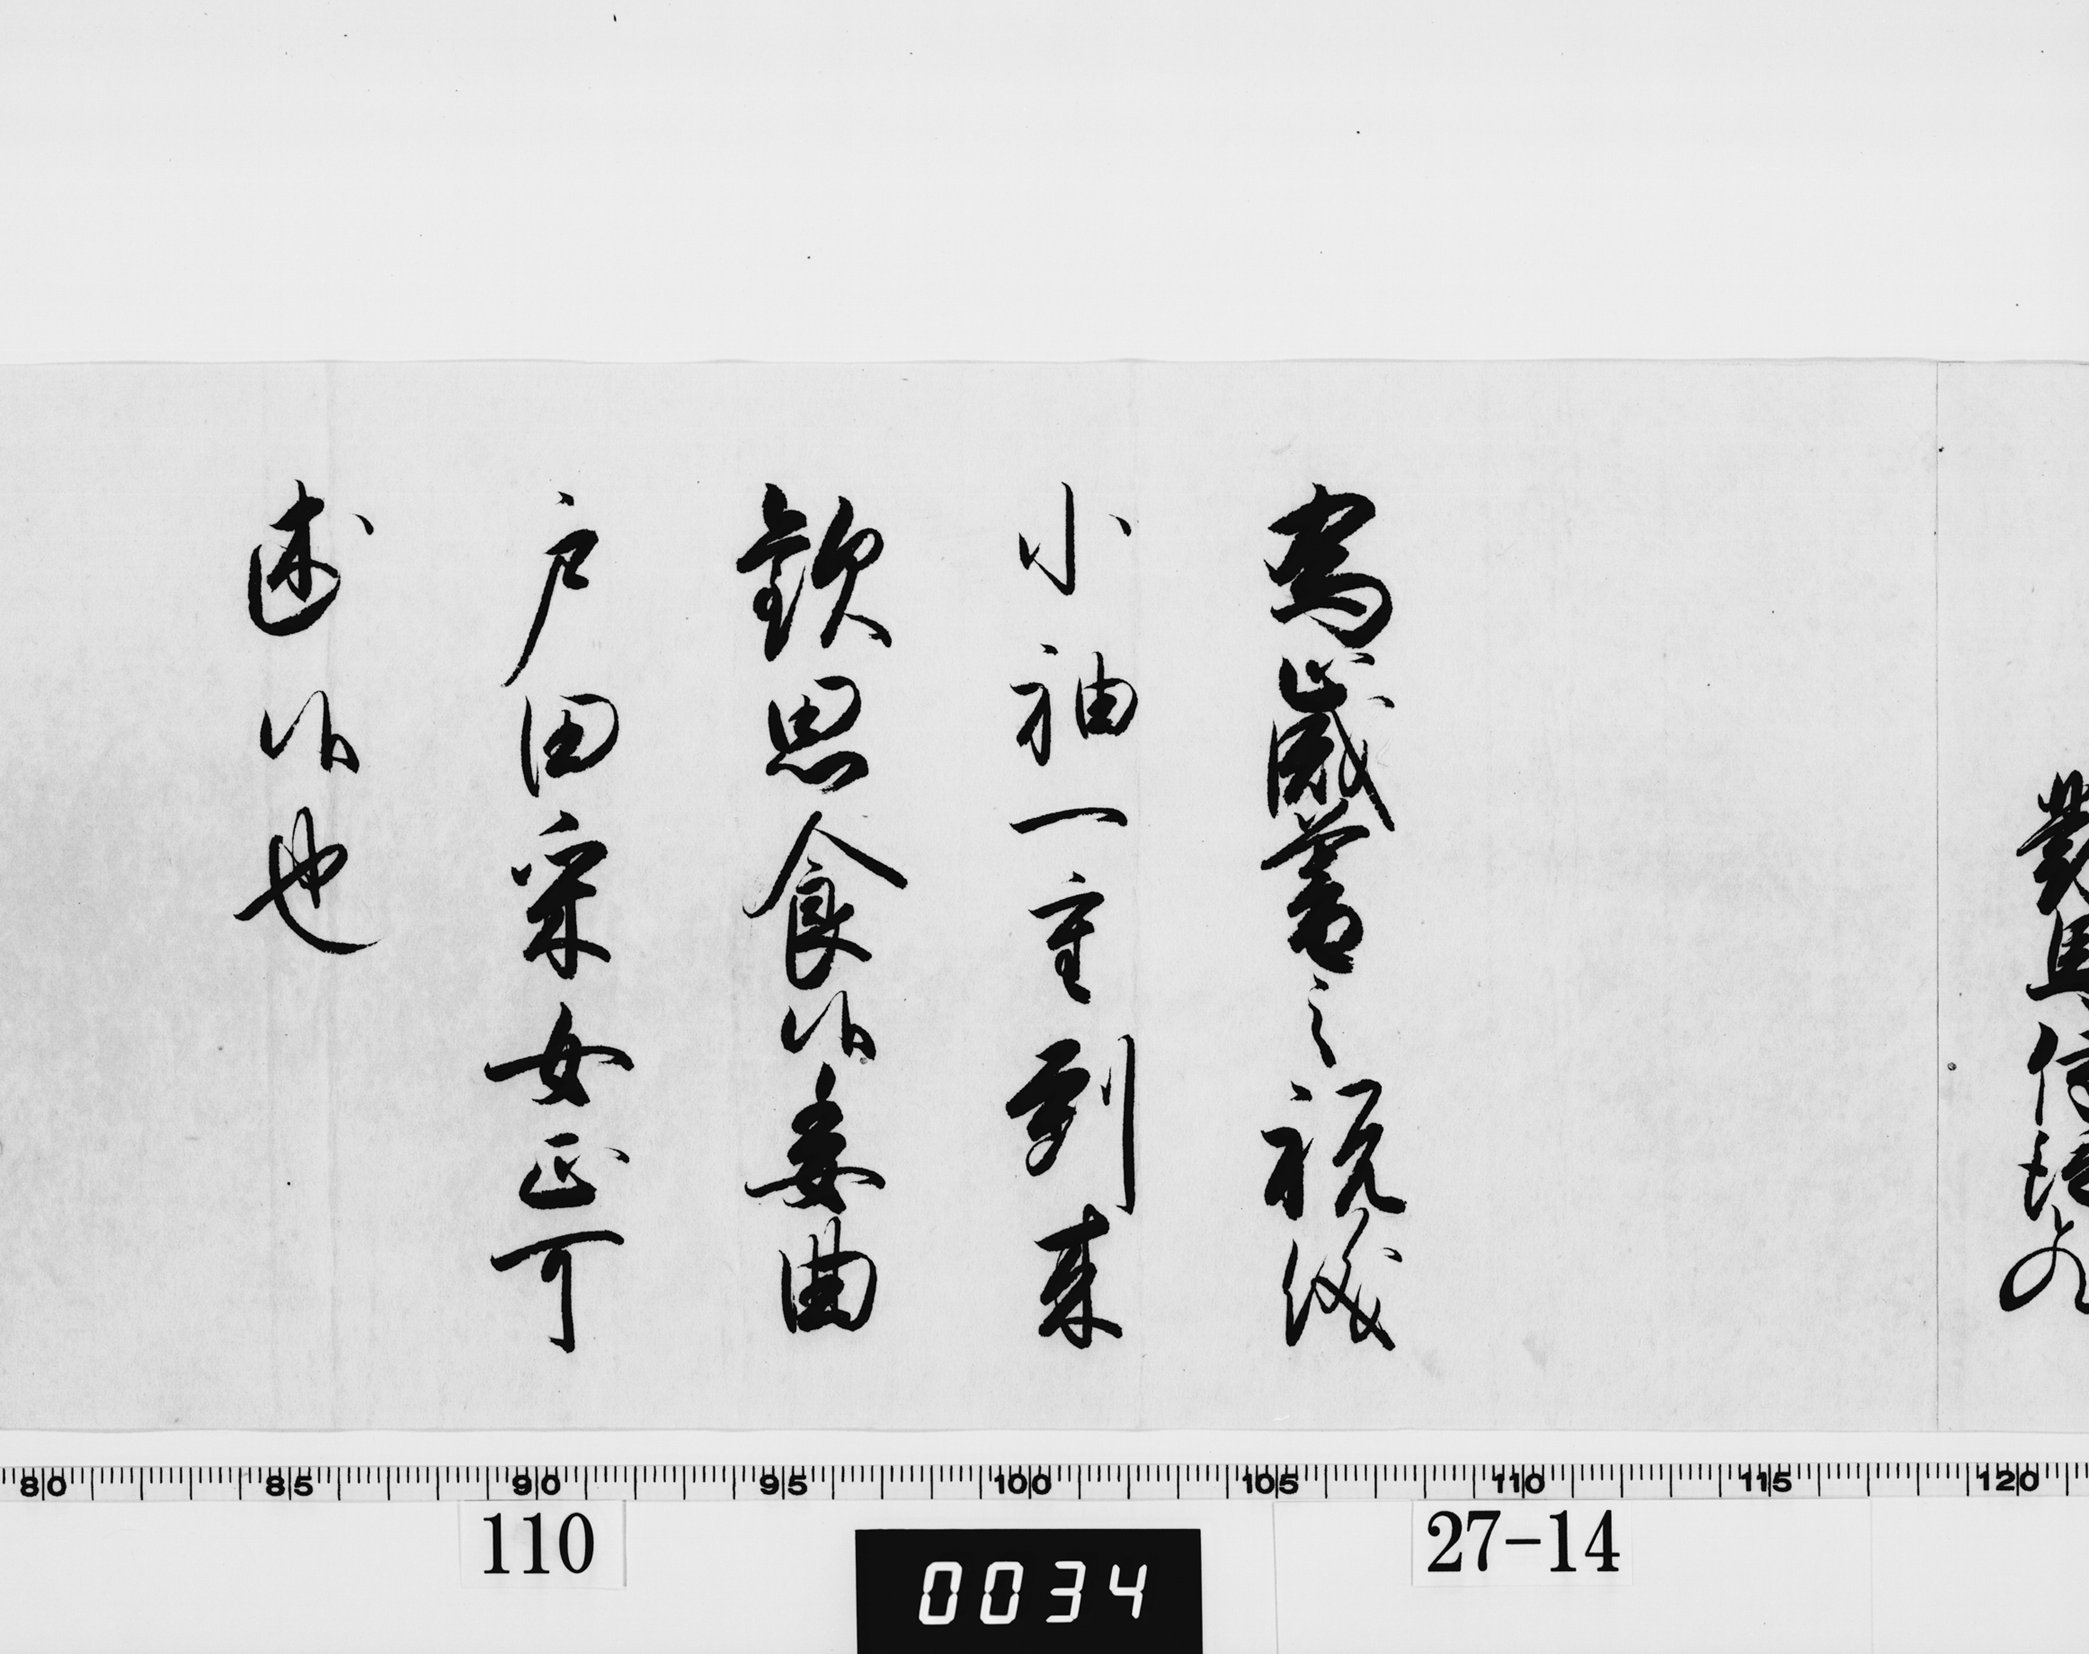 對馬侍従殿
為歳暮之祝儀
小袖一重到来
歓思食候委曲
戸田采女正可
述候也
80 85 90 95 100 105 110 115 120
110
27-14
0034